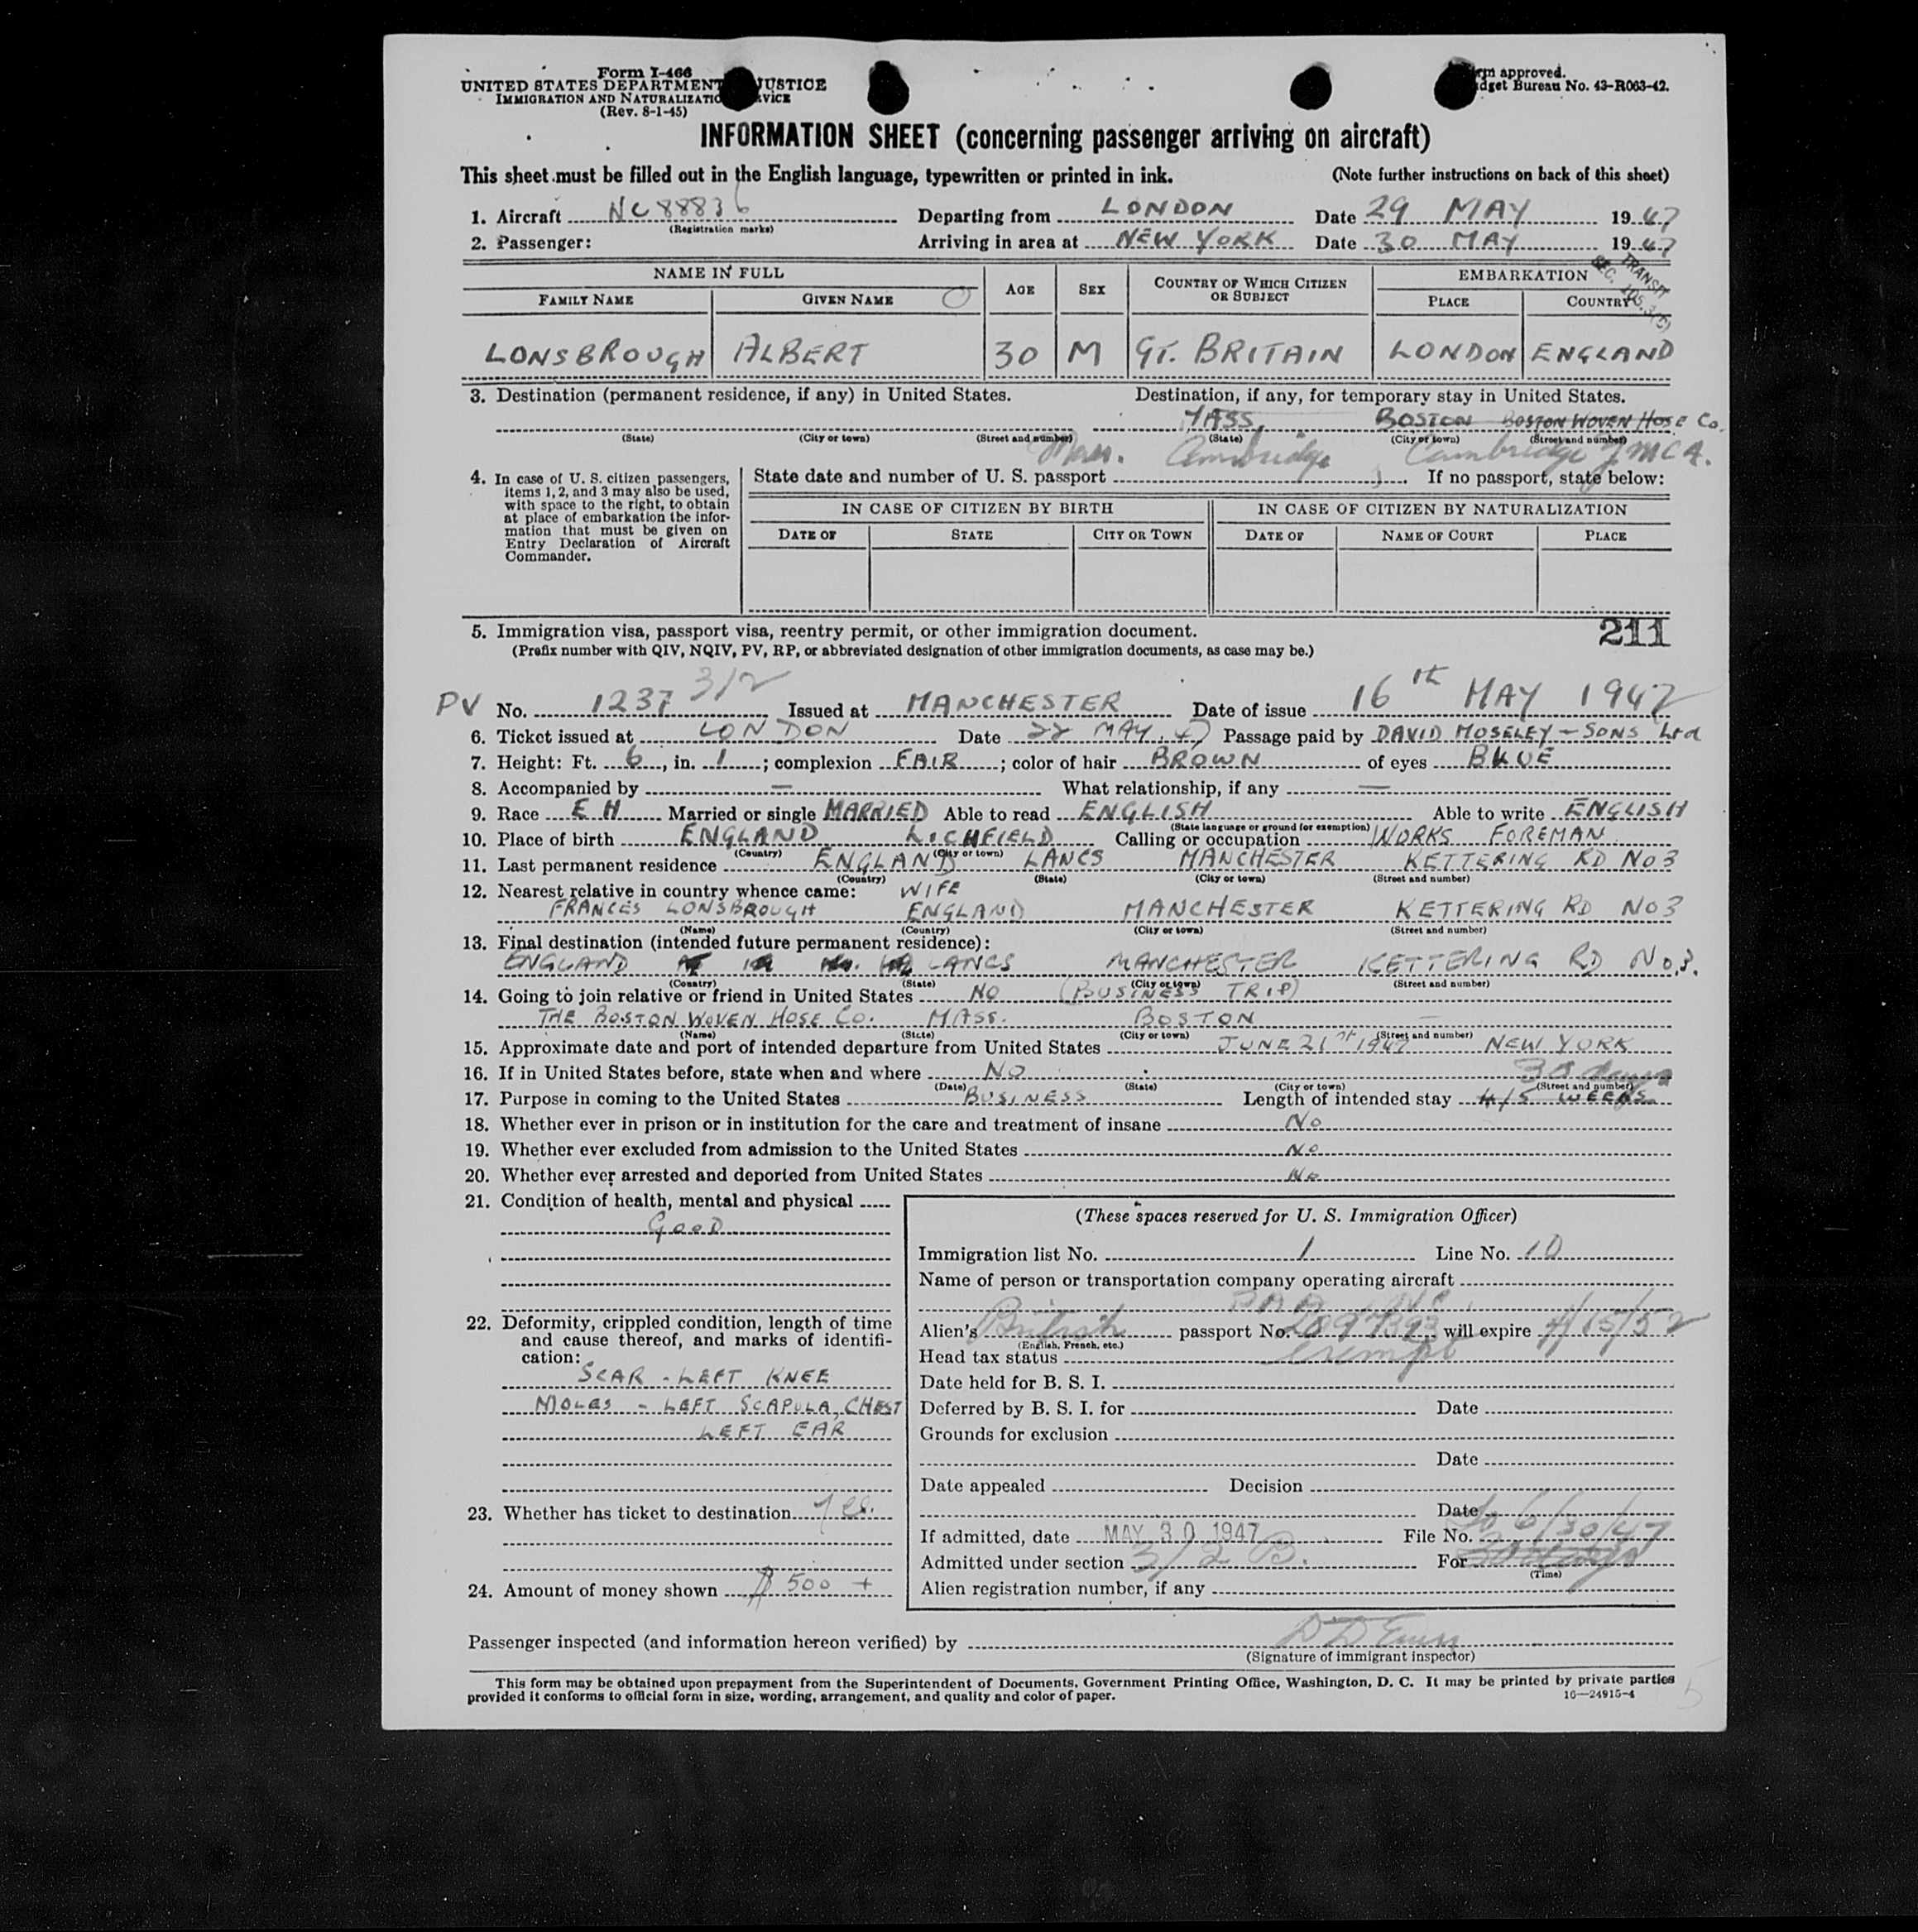 Form I-466
UNITED STATES DEPARTMENT JUSTICE
IMMIGRATION AND NATURALIZATION
(Rev. 8-1-45)
approved.
Bureau No. 43-R063-42.
INFORMATION SHEET (concerning passenger arriving on aircraft)
This sheet must be filled out in the English language, typewritten or printed in ink. (Note further instructions on back of this sheet)
1. Aircraft NC88836 Departing from LONDON Date 29 MAY 1947
(Registration marks)
2. Passenger: Arriving in area at NEW YORK Date 30 MAY 1947
TRANSIT
SEC.
NAME IN FULL AGE SEX COUNTRY OF WHICH CITIZEN OR SUBJECT EMBARKATION
FAMILY NAME GIVEN NAME PLACE COUNTRY
LONSBROUGH ALBERT 30 M GT. BRITAIN LONDON ENGLAND
3. Destination (permanent residence, if any) in United States. Destination, if any, for temporary stay in United States.
MASS, BOSTON BOSTON WOVEN HOSE Co.
(State) (City or town) (Street and number) (State) (City or town) (Street and number)
Mass. Cambridge Cambridge YMCA.
4. In case of U. S. citizen passengers, items 1, 2, and 3 may also be used, with space to the right, to obtain at place of embarkation the information that must be given on Entry Declaration of Aircraft Commander.
State date and number of U. S. passport If no passport, state below:
IN CASE OF CITIZEN BY BIRTH IN CASE OF CITIZEN BY NATURALIZATION
DATE OF STATE CITY OR TOWN DATE OF NAME OF COURT PLACE
5. Immigration visa, passport visa, reentry permit, or other immigration document. 211
(Prefix number with QIV, NQIV, PV, RP, or abbreviated designation of other immigration documents, as case may be.)
3/2
PV No. 1237 Issued at MANCHESTER Date of issue 16th MAY 1947
6. Ticket issued at LONDON Date 22 MAY. 47 Passage paid by DAVID MOSELEY - SONS Ltd
7. Height: Ft. 6, in. 1; complexion FAIR; color of hair BROWN of eyes BLUE
8. Accompanied by — What relationship, if any —
9. Race EH Married or single MARRIED Able to read ENGLISH Able to write ENGLISH
(State language or ground for exemption)
10. Place of birth ENGLAND LICHFIELD Calling or occupation WORKS FOREMAN
(Country) (City or town)
11. Last permanent residence ENGLAND LANCS MANCHESTER KETTERING RD NO 3
(Country) (State) (City or town) (Street and number)
12. Nearest relative in country whence came: WIFE
FRANCES LONSBROUGH ENGLAND MANCHESTER KETTERING RD NO 3
(Name) (Country) (City or town) (Street and number)
13. Final destination (intended future permanent residence):
ENGLAND LANCS MANCHESTER KETTERING RD No. 3.
(Country) (State) (City or town) (Street and number)
14. Going to join relative or friend in United States NO (BUSINESS TRIP)
THE BOSTON WOVEN HOSE Co. MASS. BOSTON —
(Name) (State) (City or town) (Street and number)
15. Approximate date and port of intended departure from United States JUNE 21st 1947 NEW YORK
16. If in United States before, state when and where NO
(Date) (State) (City or town) (Street and number)
30 days
17. Purpose in coming to the United States BUSINESS Length of intended stay 4/5 WEEKS
18. Whether ever in prison or in institution for the care and treatment of insane No
19. Whether ever excluded from admission to the United States No
20. Whether ever arrested and deported from United States No
21. Condition of health, mental and physical
GOOD
22. Deformity, crippled condition, length of time and cause thereof, and marks of identification:
SCAR - LEFT KNEE
MOLES - LEFT SCAPULA, CHEST
LEFT EAR
23. Whether has ticket to destination Yes.
24. Amount of money shown $ 500 +
(These spaces reserved for U. S. Immigration Officer)
Immigration list No. 1 Line No. 10
Name of person or transportation company operating aircraft
Alien's British passport No. will expire 4/15/52
(English, French, etc.)
Head tax status exempt
Date held for B. S. I.
Deferred by B. S. I. for Date
Grounds for exclusion
Date
Date appealed Decision
Date to 6/30/47
If admitted, date MAY 30 1947 File No.
Admitted under section 3/2 B. For
(Time)
Alien registration number, if any
Passenger inspected (and information hereon verified) by
(Signature of immigrant inspector)
This form may be obtained upon prepayment from the Superintendent of Documents, Government Printing Office, Washington, D. C. It may be printed by private parties
provided it conforms to official form in size, wording, arrangement, and quality and color of paper. 16—24915-4